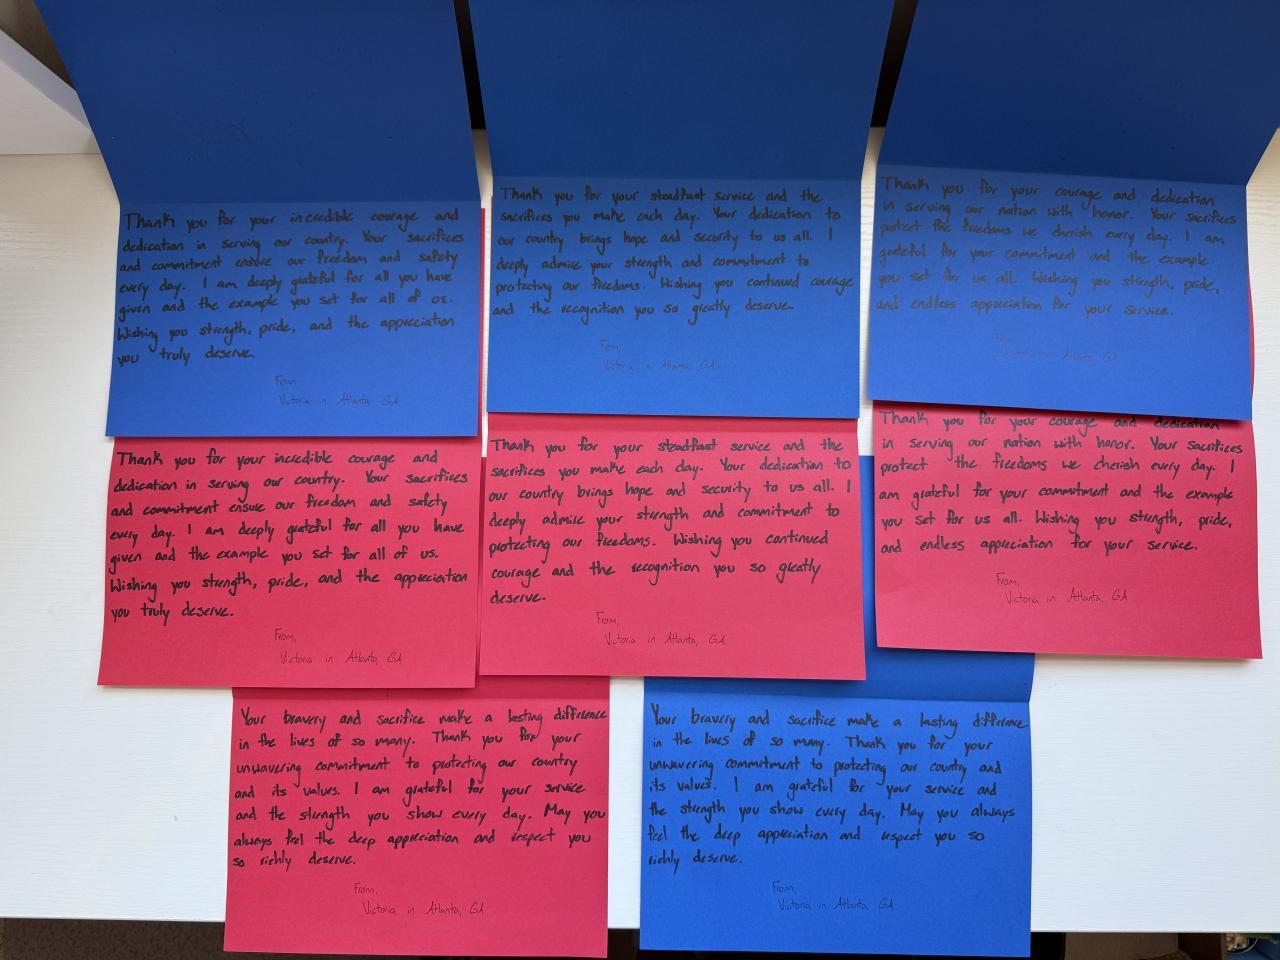 Thank you for your incredible courage and
dedication in serving our country. Your sacrifices
and commitment ensure our freedom and safety
every day. I am deeply grateful for all you have
given and the example you set for all of us.
Wishing you strength, pride, and the appreciation
you truly deserve.
From,
Victoria in Atlanta, GA
Thank you for your steadfast service and the
sacrifices you make each day. Your dedication to
our country brings hope and security to us all. I
deeply admire your strength and commitment to
protecting our freedoms. Wishing you continued courage
and the recognition you so greatly deserve.
From,
Victoria in Atlanta, GA
Thank you for your courage and dedication
in serving our nation with honor. Your sacrifices
protect the freedoms we cherish every day. I am
grateful for your commitment and the example
you set for us all. Wishing you strength, pride,
and endless appreciation for your service.
From,
Victoria in Atlanta, GA
Thank you for your incredible courage and
dedication in serving our country. Your sacrifices
and commitment ensure our freedom and safety
every day. I am deeply grateful for all you have
given and the example you set for all of us.
Wishing you strength, pride, and the appreciation
you truly deserve.
From,
Victoria in Atlanta, GA
Thank you for your steadfast service and the
sacrifices you make each day. Your dedication to
our country brings hope and security to us all. I
deeply admire your strength and commitment to
protecting our freedoms. Wishing you continued
courage and the recognition you so greatly
deserve.
From,
Victoria in Atlanta, GA
Thank you for your courage and dedication
in serving our nation with honor. Your sacrifices
protect the freedoms we cherish every day. I
am grateful for your commitment and the example
you set for us all. Wishing you strength, pride,
and endless appreciation for your service.
From,
Victoria in Atlanta, GA
Your bravery and sacrifice make a lasting difference
in the lives of so many. Thank you for your
unwavering commitment to protecting our country
and its values. I am grateful for your service
and the strength you show every day. May you
always feel the deep appreciation and respect you
so richly deserve.
From,
Victoria in Atlanta, GA
Your bravery and sacrifice make a lasting difference
in the lives of so many. Thank you for your
unwavering commitment to protecting our country and
its values. I am grateful for your service and
the strength you show every day. May you always
feel the deep appreciation and respect you so
richly deserve.
From,
Victoria in Atlanta, GA